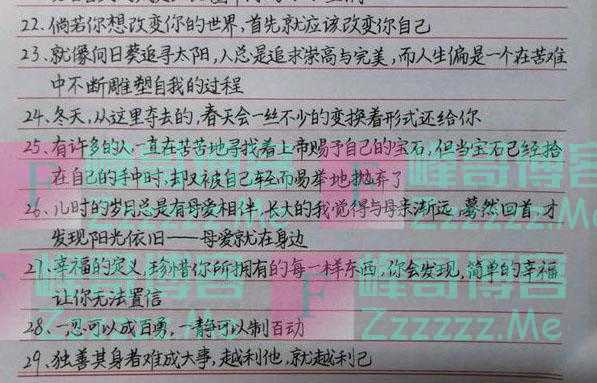 22、倘若你想改变你的世界,首先就应该改变你自己
23、就像向日葵追寻太阳,人总是追求崇高与完美,而人生偏是一个在苦难
中不断雕塑自我的过程
24、冬天,从这里夺去的,春天会一丝不少的变换着形式还给你
25、有许多的人一直在苦苦地寻找着上帝赐予自己的宝石,但当宝石已经拾
在自己的手中时,却又被自己轻而易举地抛弃了
26、儿时的岁月总是有母爱相伴,长大的我觉得与母亲渐远,蓦然回首,才
发现阳光依旧——母爱就在身边
27、幸福的定义,珍惜你所拥有的每一样东西,你会发现,简单的幸福
让你无法置信
28、一忍可以成百勇,一静可以制百动
29、独善其身者难成大事,越利他,就越利己
峰奇博客
Zzzzzz.Me
峰奇博客
Zzzzzz.Me